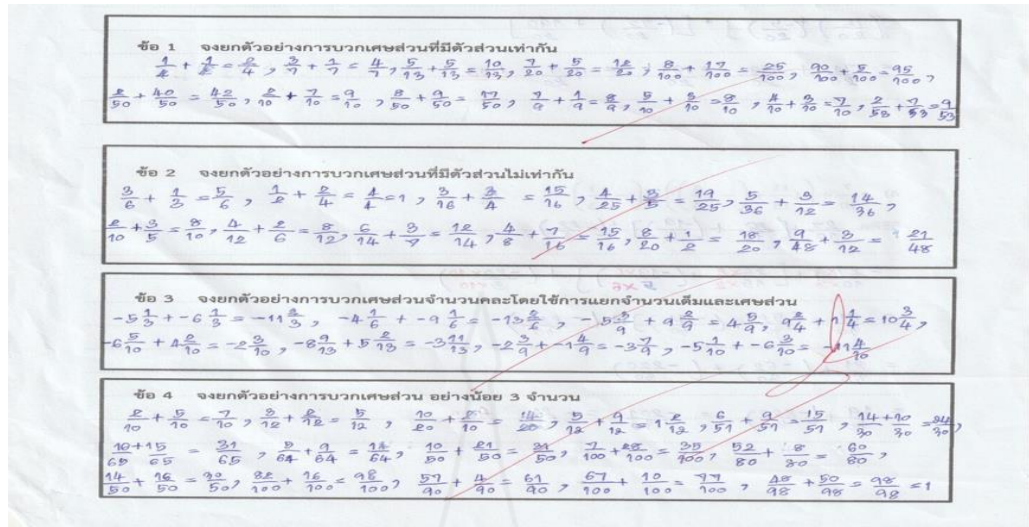 ข้อ 1 จงยกตัวอย่างการบวกเศษส่วนที่มีตัวส่วนเท่ากัน
3/7 + 1/7 = 4/7, 5/13 + 5/13 = 10/13, 7/20 + 5/20 = 12/20, 8/100 + 17/100 = 25/100, 90/100 + 5/100 = 95/100,
2/50 + 40/50 = 42/50, 2/10 + 7/10 = 9/10, 8/50 + 9/50 = 17/50, 7/9 + 1/9 = 8/9, 4/10 + 3/10 = 7/10, 2/53 + 7/53 = 9/53
ข้อ 2 จงยกตัวอย่างการบวกเศษส่วนที่มีตัวส่วนไม่เท่ากัน
3/6 + 1/3 = 5/6, 1/2 + 2/4 = 4/4 = 1, 3/16 + 3/4 = 15/16, 4/25 + 3/5 = 19/25, 5/36 + 3/12 = 14/36,
2/10 + 3/5 = 8/10, 4/12 + 2/6 = 8/12, 6/14 + 3/7 = 12/14, 4/8 + 7/16 = 15/16, 8/20 + 1/2 = 18/20, 9/48 + 3/12 = 21/48
ข้อ 3 จงยกตัวอย่างการบวกเศษส่วนจำนวนคละโดยใช้การแยกจำนวนเต็มและเศษส่วน
-4 1/6 + -9 1/6 = -13 2/6, -5 3/9 + 9 2/9 = 4 5/9, 9 2/4 + 1 1/4 = 10 3/4,
-6 5/10 + 4 2/10 = -2 3/10, -8 9/13 + 5 2/13 = -3 11/13, -2 3/9 + -1 4/9 = -3 7/9, -5 1/10 + -6 3/10 = -11 4/10
ข้อ 4 จงยกตัวอย่างการบวกเศษส่วน อย่างน้อย 3 จำนวน
2/10 + 5/10 = 7/10, 3/12 + 2/12 = 5/12, 5/12 + 9/12 = 1 2/12, 6/51 + 9/51 = 15/51, 14+10/30 30 = 24/30,
16+15/65 65 = 31/65, 5/64 + 9/64 = 14/64, 10/50 + 21/50 = 31/50, 7/100 + 28/100 = 35/100, 52/80 + 8/80 = 60/80,
14/50 + 16/50 = 30/50, 82/100 + 16/100 = 98/100, 57/90 + 4/90 = 61/90, 67/100 + 10/100 = 77/100, 48/98 + 50/98 = 98/98 = 1